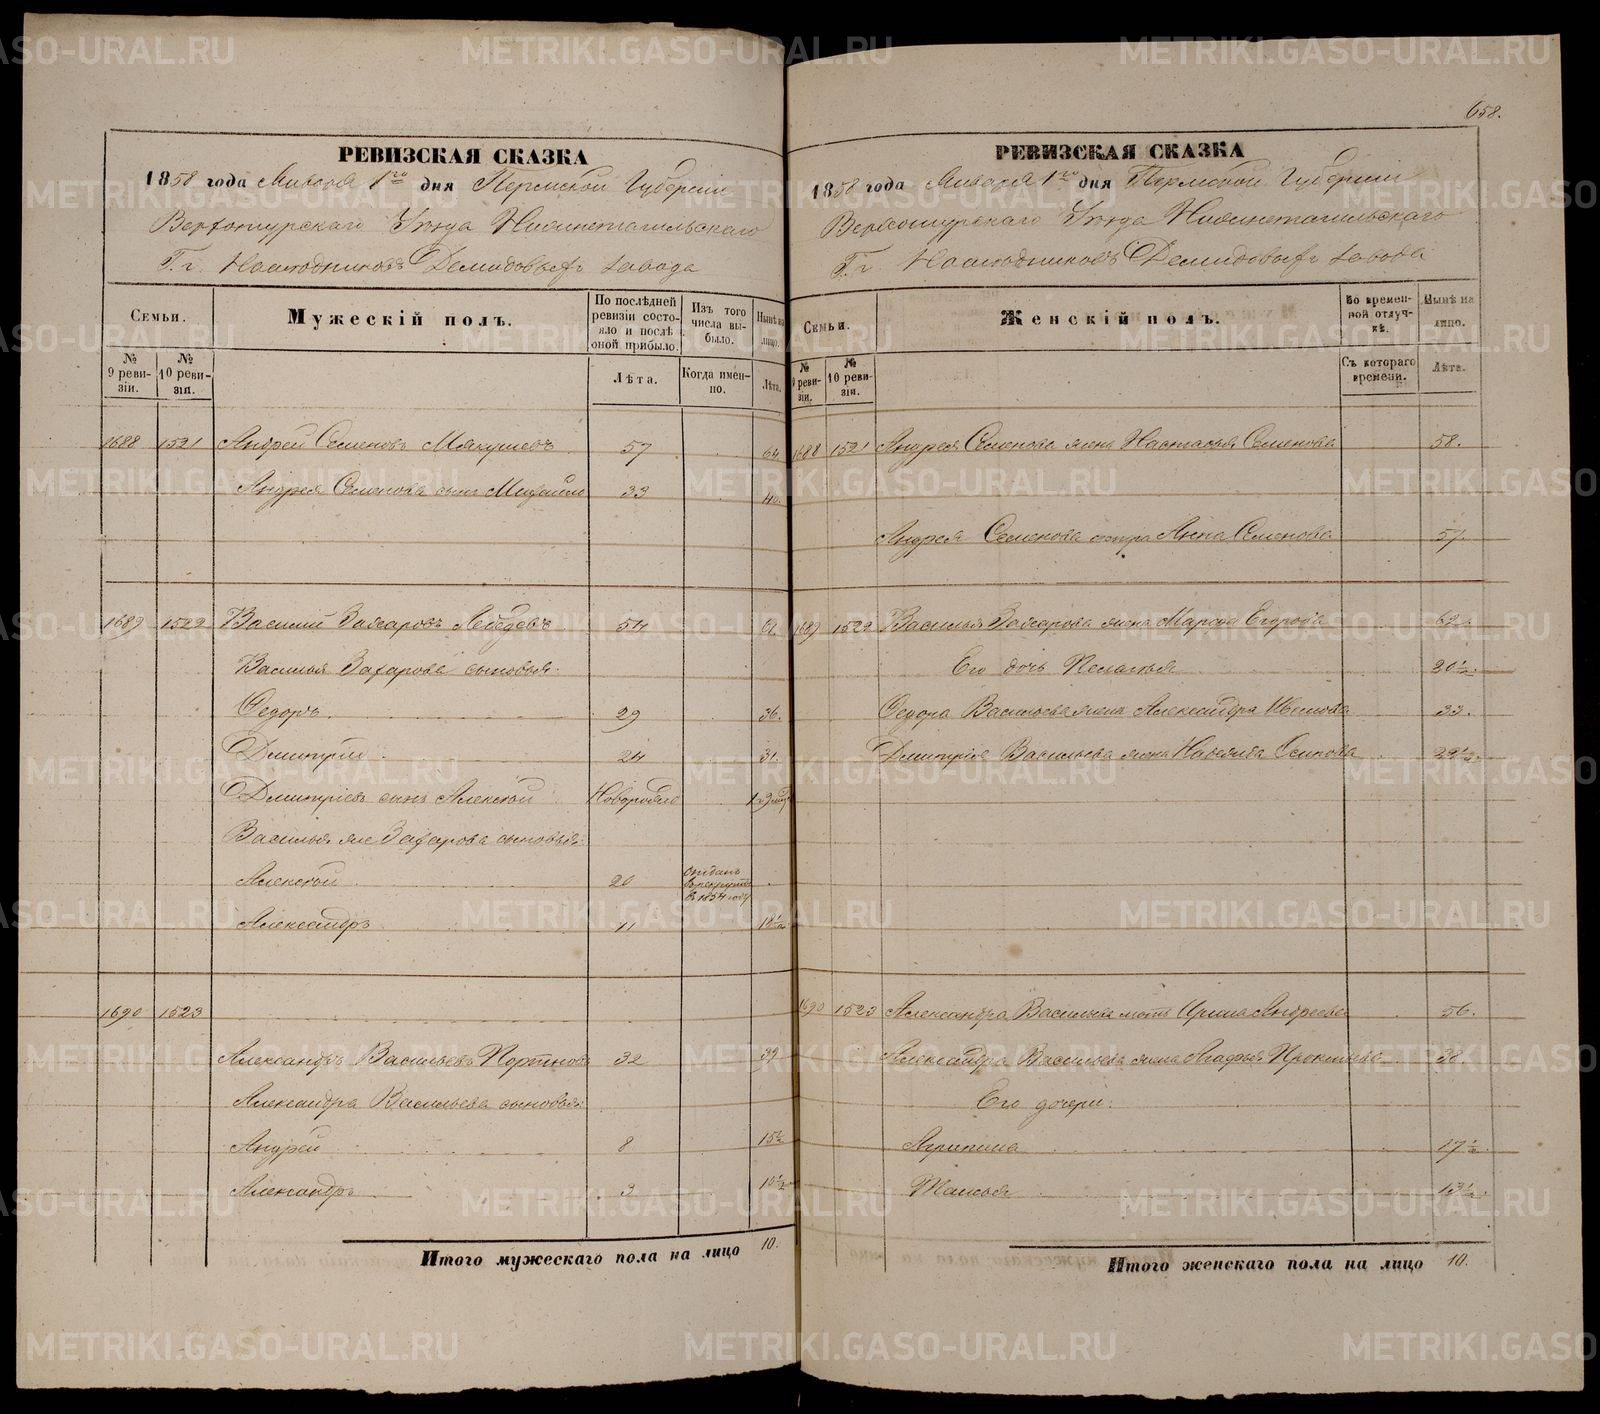 658.
РЕВИЗСКАЯ СКАЗКА
1858 года Января 1го дня Пермской Губернии
Верхотурскаго Уезда Нижнетагильскаго
Г.г. Наследниковъ Демидовыхъ завода
Семьи.
Мужескій полъ.
По послѣдней ревизіи состояло и послѣ оной прибыло.
Изъ того числа выбыло.
Нынѣ на лицо.
№ 9 ревизіи.
№ 10 ревизіи.
Лѣта.
Когда именно.
Лѣта.
1688 1521 Андрей Семеновъ Мякушевъ 57 64
Андрея Семенова сынъ Михайло 33 40
1689 1522 Василий Захаровъ Лебедевъ 54 61
Василья Захарова сыновья:
Федоръ 29 36.
Дмитрий 24 31.
Дмитріевъ сынъ Алексей Новорожд
Василья же Захарова сыновья:
Алексей 20 отданъ в рекруты в 1854 году
Александръ 11 18½
1690 1523
Александръ Васильевъ Портновъ 32 39
Александра Васильева сыновья:
Андрей 8 15½
Александръ 3 10½
Итого мужескаго пола на лицо 10.
РЕВИЗСКАЯ СКАЗКА
1858 года Января 1го дня Пермской Губернии
Верхотурскаго Уезда Нижнетагильскаго
Г.г. Наследниковъ Демидовыхъ завода
Семьи.
Женскій полъ.
Во временной отлучкѣ.
Нынѣ на лицо.
№ 9 ревизіи.
№ 10 ревизіи.
Съ котораго времени.
Лѣта.
1688 1521 Андрея Семенова жена Настасья Семенова 58.
Андрея Семенова сестра Анна Семенова 57.
1689 1522 Василья Захарова жена Марфа Егорова 62.
Его дочь Пелагья 20½.
Федора Васильева жена Александра Иванова 33.
Дмитрія Васильева жена Надежда Осипова 29½.
1690 1523 Александра Васильева мать Ирина Андреева 56.
Александра Васильева жена Агафья Прокопьева 38
Его дочери:
Агрипина 17½
Таисья 13½.
Итого женскаго пола на лицо 10.
METRIKI.GASO-URAL.RU